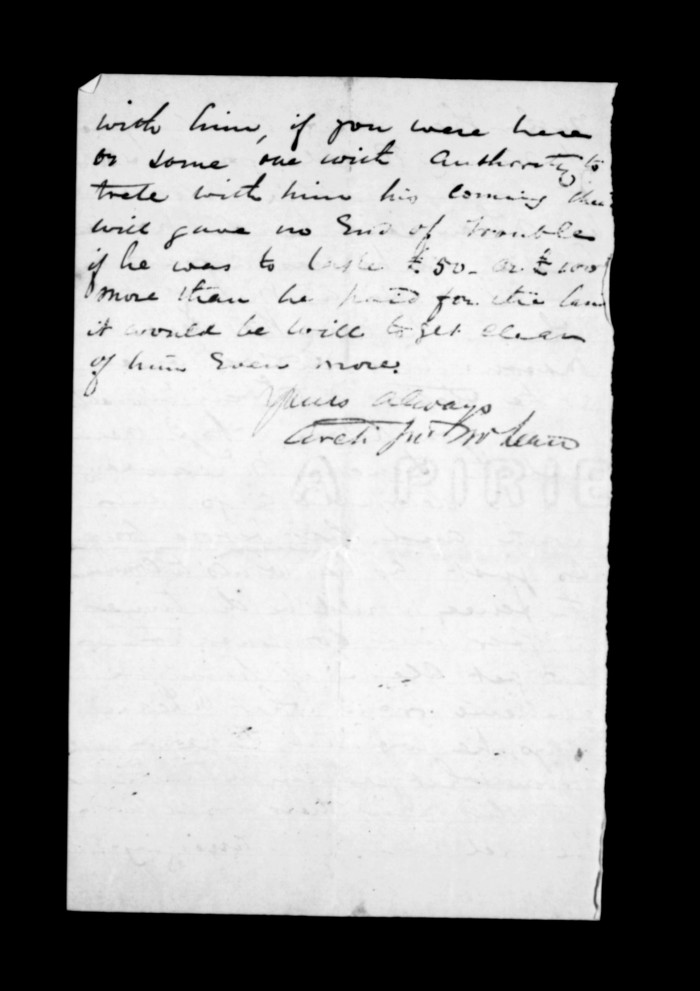 with him, if you were here
or some one with authority to
trete with him his coming
will gave no End of trouble
if he was to £50- or £100
more than he paid for the lan
it would be will to get clear
of him Even more.
Yours always
Archd Jno McLean